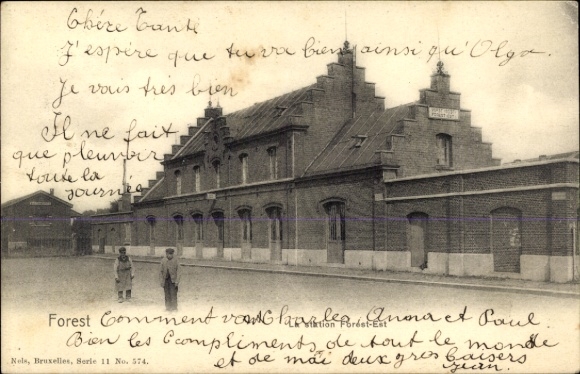 Chère Tante
J'espère que tu va bien ainsi qu'Olga.
Je vais très bien
Il ne fait
que pleuvoir
toute la
journée
Forest
La station Forest-Est
Comment vont Charles, Anna et Paul.
Bien les Compliments de tout le monde
et de moi deux gros baisers
Jean.
Nels, Bruxelles, Serie 11 No. 574.